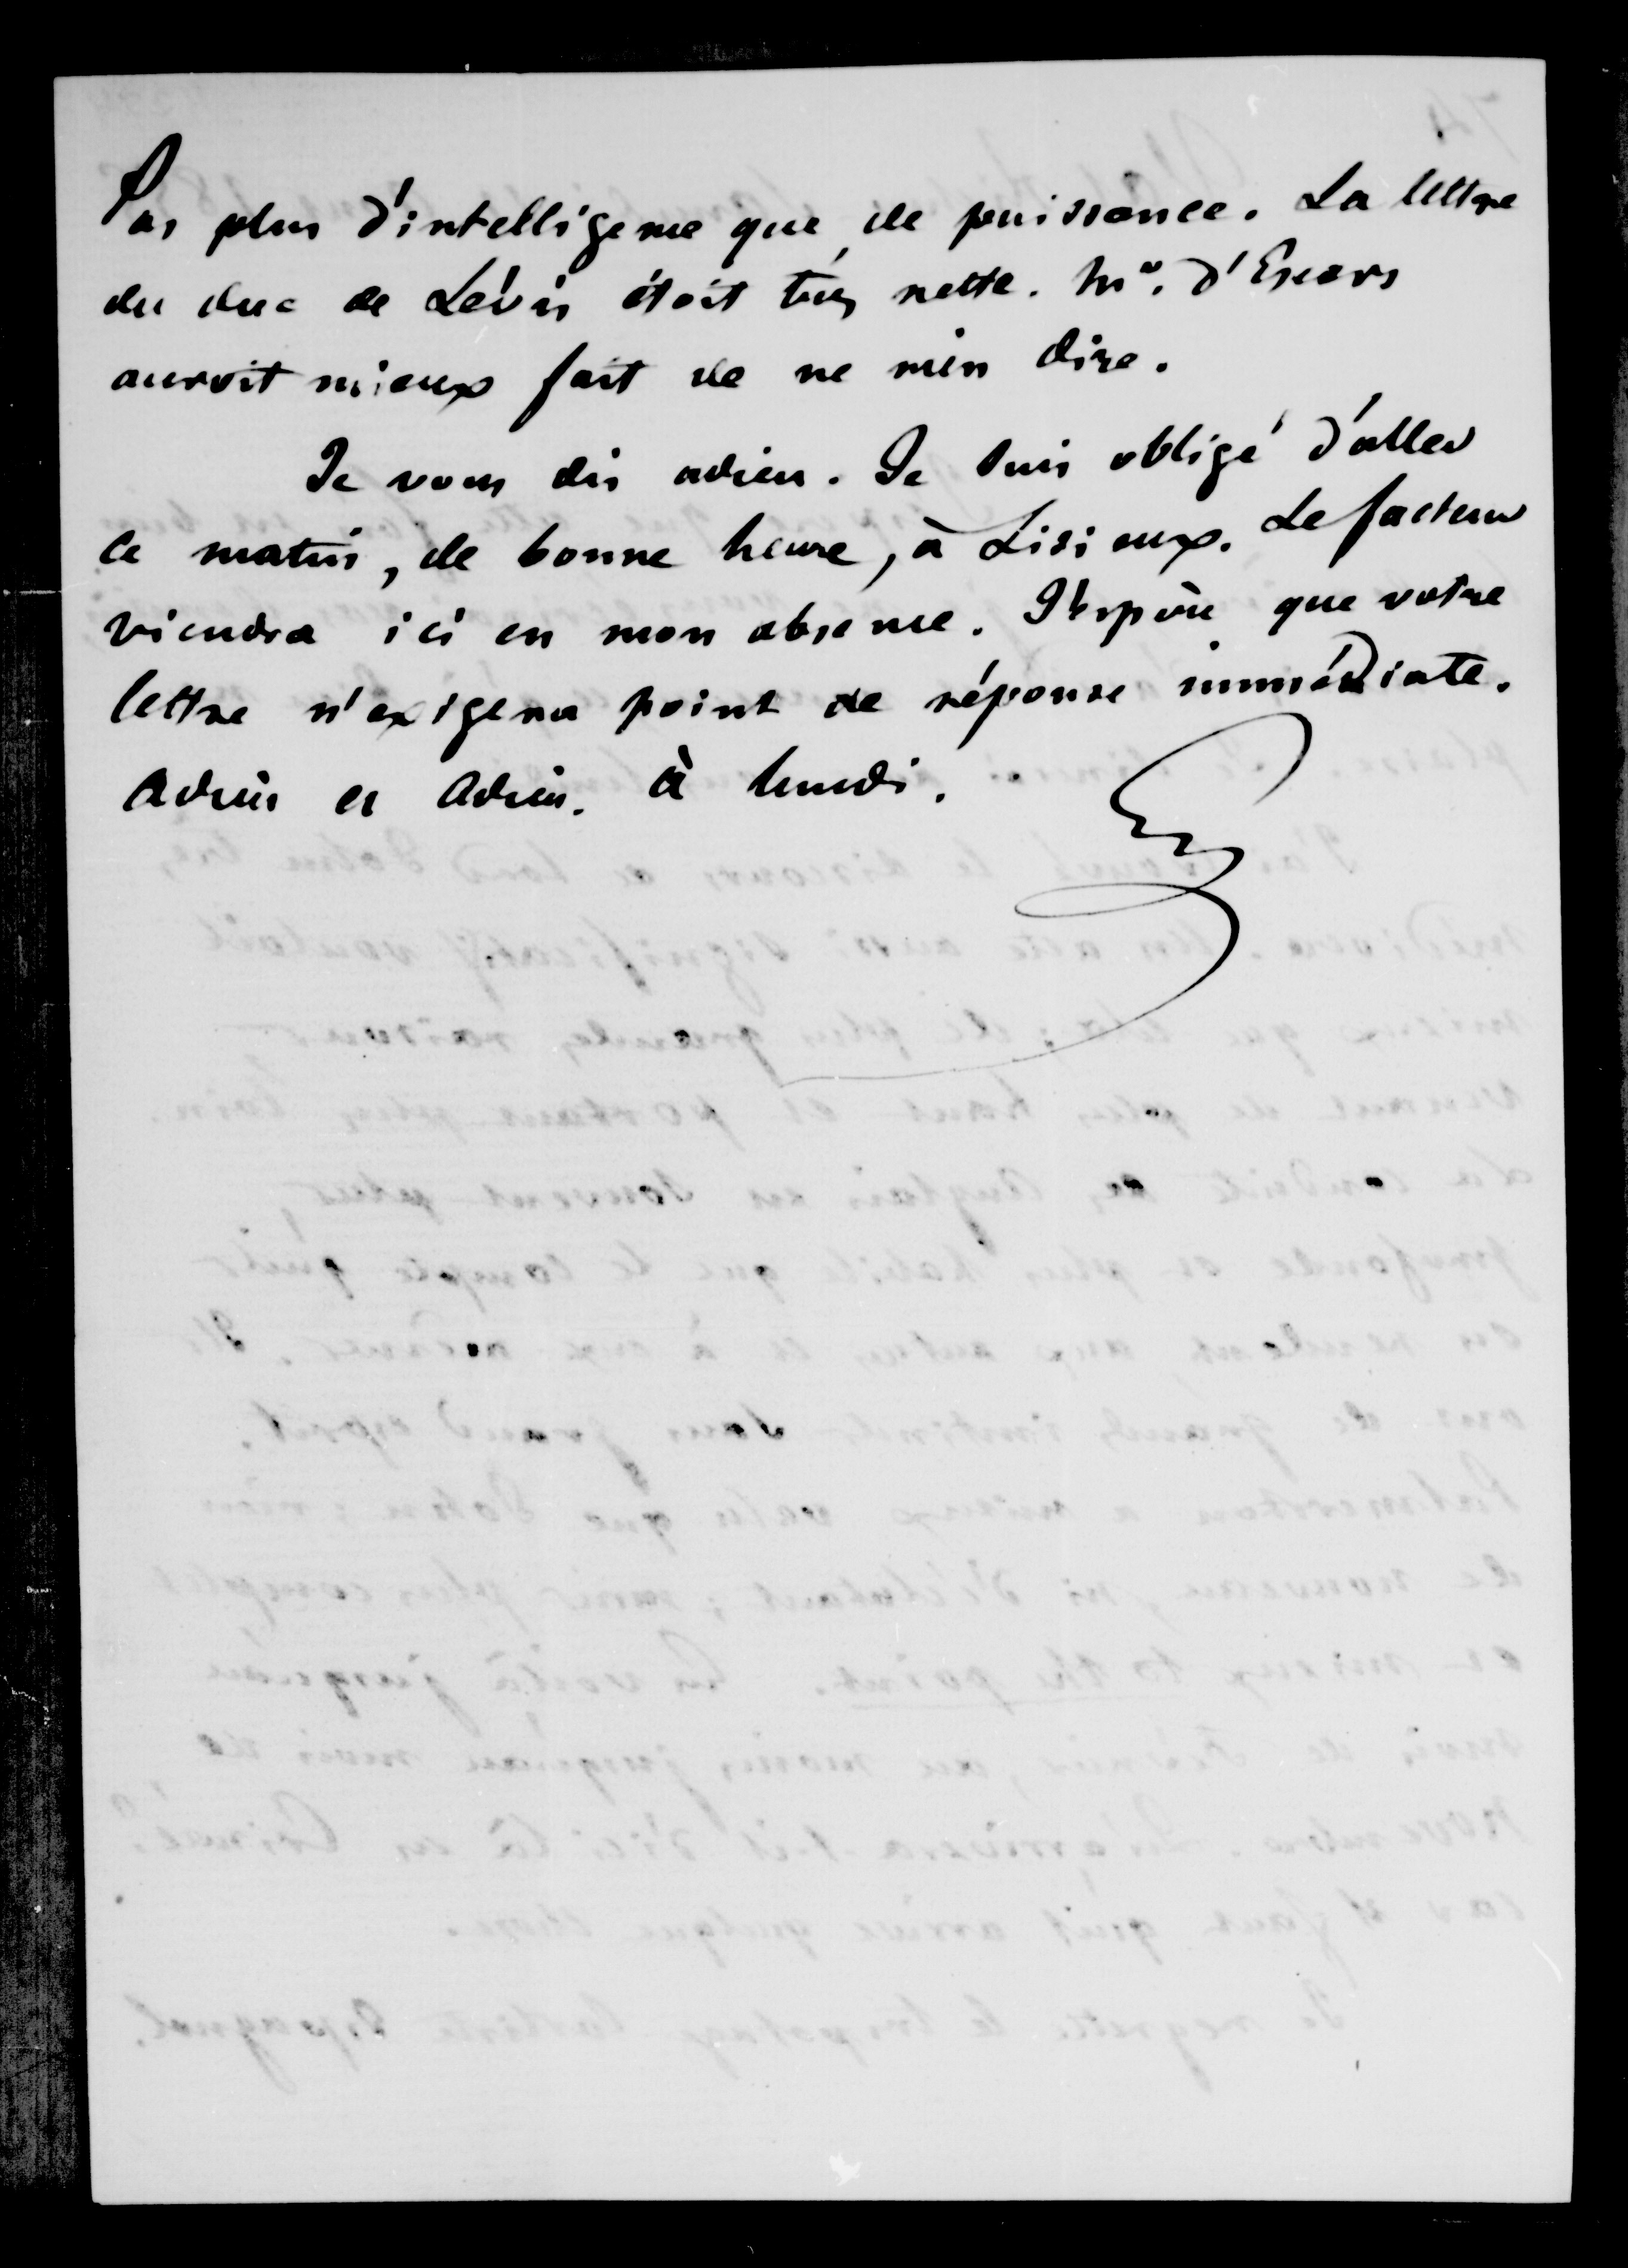 Pas plus d'intelligence que de puissance. La lettre
du duc de Lévis étoit très nette. Mr. d'Escars
auroit mieux fait de ne rien dire.
Je vous dis adieu. Je suis obligé d'aller
ce matin, de bonne heure, à Lisieux. Le facteur
viendra ici en mon absence. J'espère que votre
lettre n'exigera point de réponse immédiate.
Adieu et Adieu. à lundi.